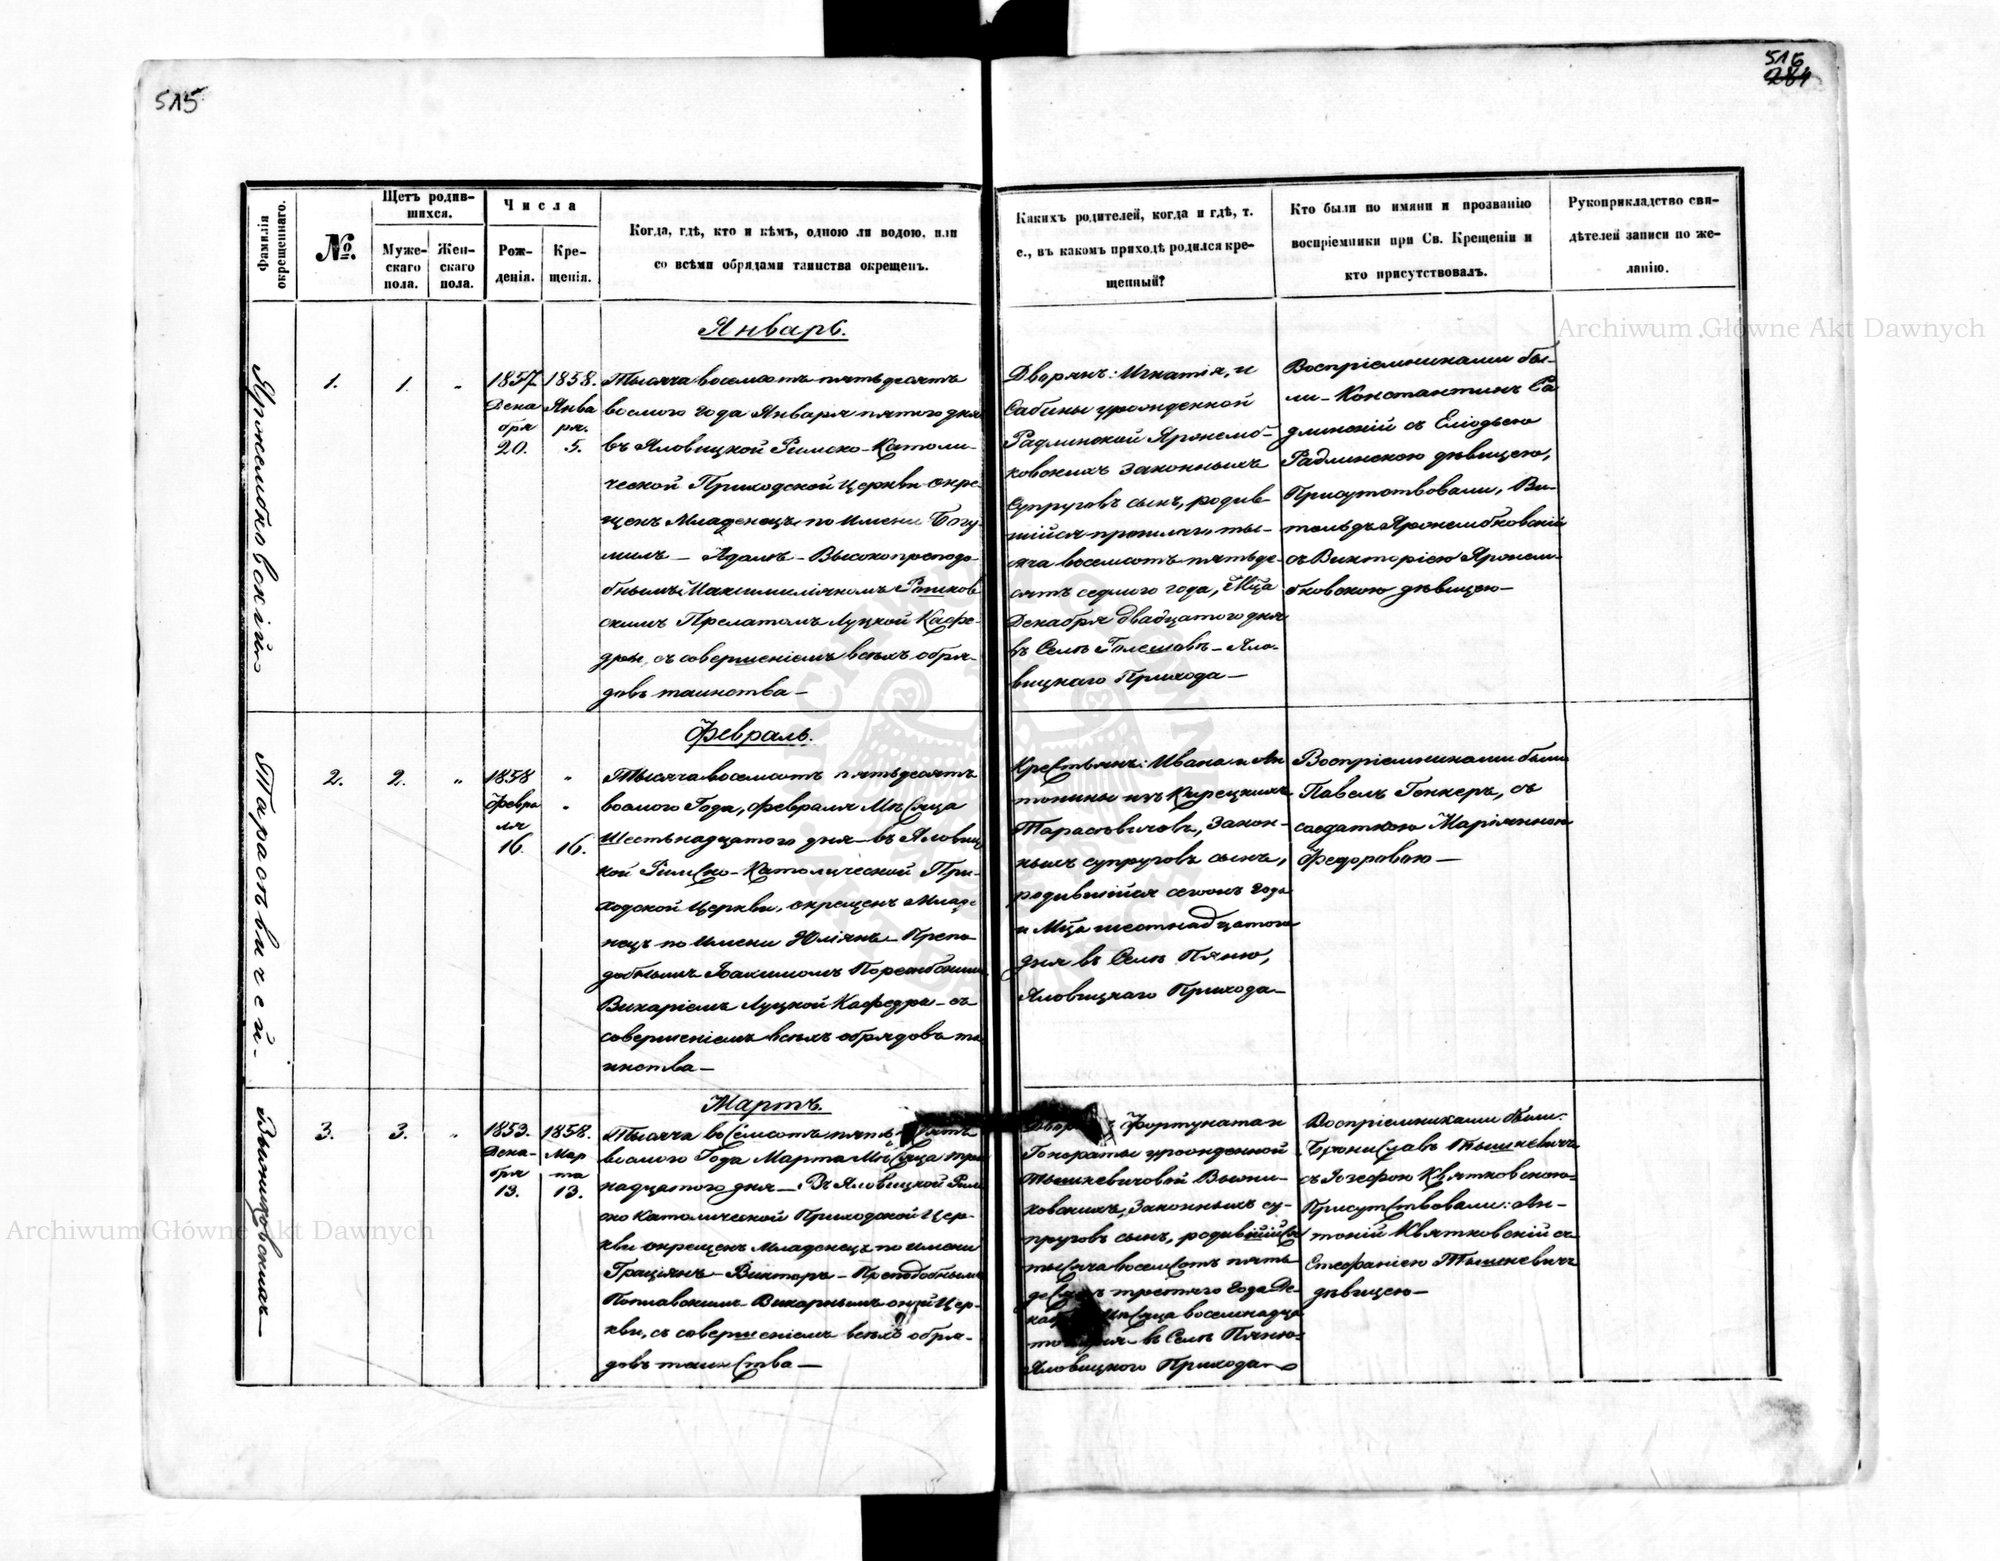 515
516
284
Фамилія окрещеннаго.
№.
Щетъ родив-
шихся.
Муже-
скаго
пола.
Жен-
скаго
пола.
Числа
Рож-
денія.
Кре-
щенія.
Когда, гдѣ, кто и кѣмъ, одною ли водою, или
со всѣми обрядами таинства окрещенъ.
Каких​ъ родителей, когда и гдѣ, т.
е., въ какомъ приходѣ родился кре-
щенный?
Кто были по имяни и прозванію
воспріемники при Св. Крещеніи и
кто присутствовалъ.
Рукоприкладство сви-
дѣтелей записи по же-
ланію.
Archiwum Główne Akt Dawnych
Январь.
1.
1.
"
1857.
Дека
бря
20.
1858.
Янва
ря.
5.
Тысяча восемсотъ пятьдесятъ
восмого года Января пятого дня
въ Яловицкой Римско-Католи-
ческой Приходской Церкви окре-
щенъ Младенецъ по имени Богу-
милъ - Адамъ - Высокопреподо-
бнымъ Максимиліяномъ
скимъ Прелатомъ Луцкой Кафе-
дры, съ совершеніемъ всѣхъ обря-
довъ таинства -
Дворянъ: Игнатія, и
Сабины урожденной
Радлинской
ковскихъ законныхъ
Супруговъ сынъ, родив-
шійся прошлаго ты-
сяча восемсотъ пятьде-
сятъ седмого года, Мца
Декабря двадцатого дня
въ Селѣ - Яло-
вицкаго Прихода -
Воспріемниками бы-
ли - Константинъ Ра
длинскій съ
Радлинскою дѣвицею,
Присутствовали, Ви-
тольдъ
съ Викторіею
бковскою дѣвицею -
Февраль.
Тарасѣвичей.
2.
2.
"
1858
Февра
ля
16.
"
"
16.
Тысяча восемсотъ пятьдесятъ
восмого Года, февраля Мѣсяца
Шестьнадцатого дня - въ Яловиц
кой Римско-Католической При-
ходской Церкви, окрещенъ Младе
нецъ по имени Юліянъ - Препо
добнымъ Іоакимомъ
Викаріемъ Луцкой Кафедры - съ
совершеніемъ всѣхъ обрядовъ та
инства -
Крестьянъ: Ивана и Ан
тонины изъ
Тарасѣвичовъ, Закон-
ныхъ супруговъ сынъ,
родившійся сегожъ года
и Мца шестнадцатого
дня въ Селѣ Пяню,
Яловицкаго Прихода -
Воспріемниками были
Павелъ Генкеръ, съ
солдаткою Маріянною
Федоровою -
Мартъ.
3.
3.
"
1853.
Дека-
бря
13.
1858.
Мар
та
13.
Тысяча восемсотъ
восмого Года Марта Мѣсяца три
надцатого дня - Въ Яловицкой Рим
ско Католической Приходской Цер-
кви окрещенъ Младенецъ по имени
Граціянъ - Викторъ - Преподобнымъ
Поплавскимъ Викарнымъ оной Цер-
кви, съ совершеніемъ всѣхъ обря-
довъ таинства -
Фортуната и
Гонораты урожденной
Тышкевичовой
ковскихъ, Законныхъ су-
пруговъ сынъ, родившійся
тысяча восемсотъ пять
третяго года Де-
Мѣсяца восемнадца
въ Селѣ Пяню
Яловицкого Прихода -
Воспріемниками были:
Брониславъ Тышкевичъ
съ Іозефою Квятковскою
Присутствовали: Ан-
тоній Квятковскій съ
Стефаніею Тышкевичъ
дѣвицею -
Archiwum Główne Akt Dawnych